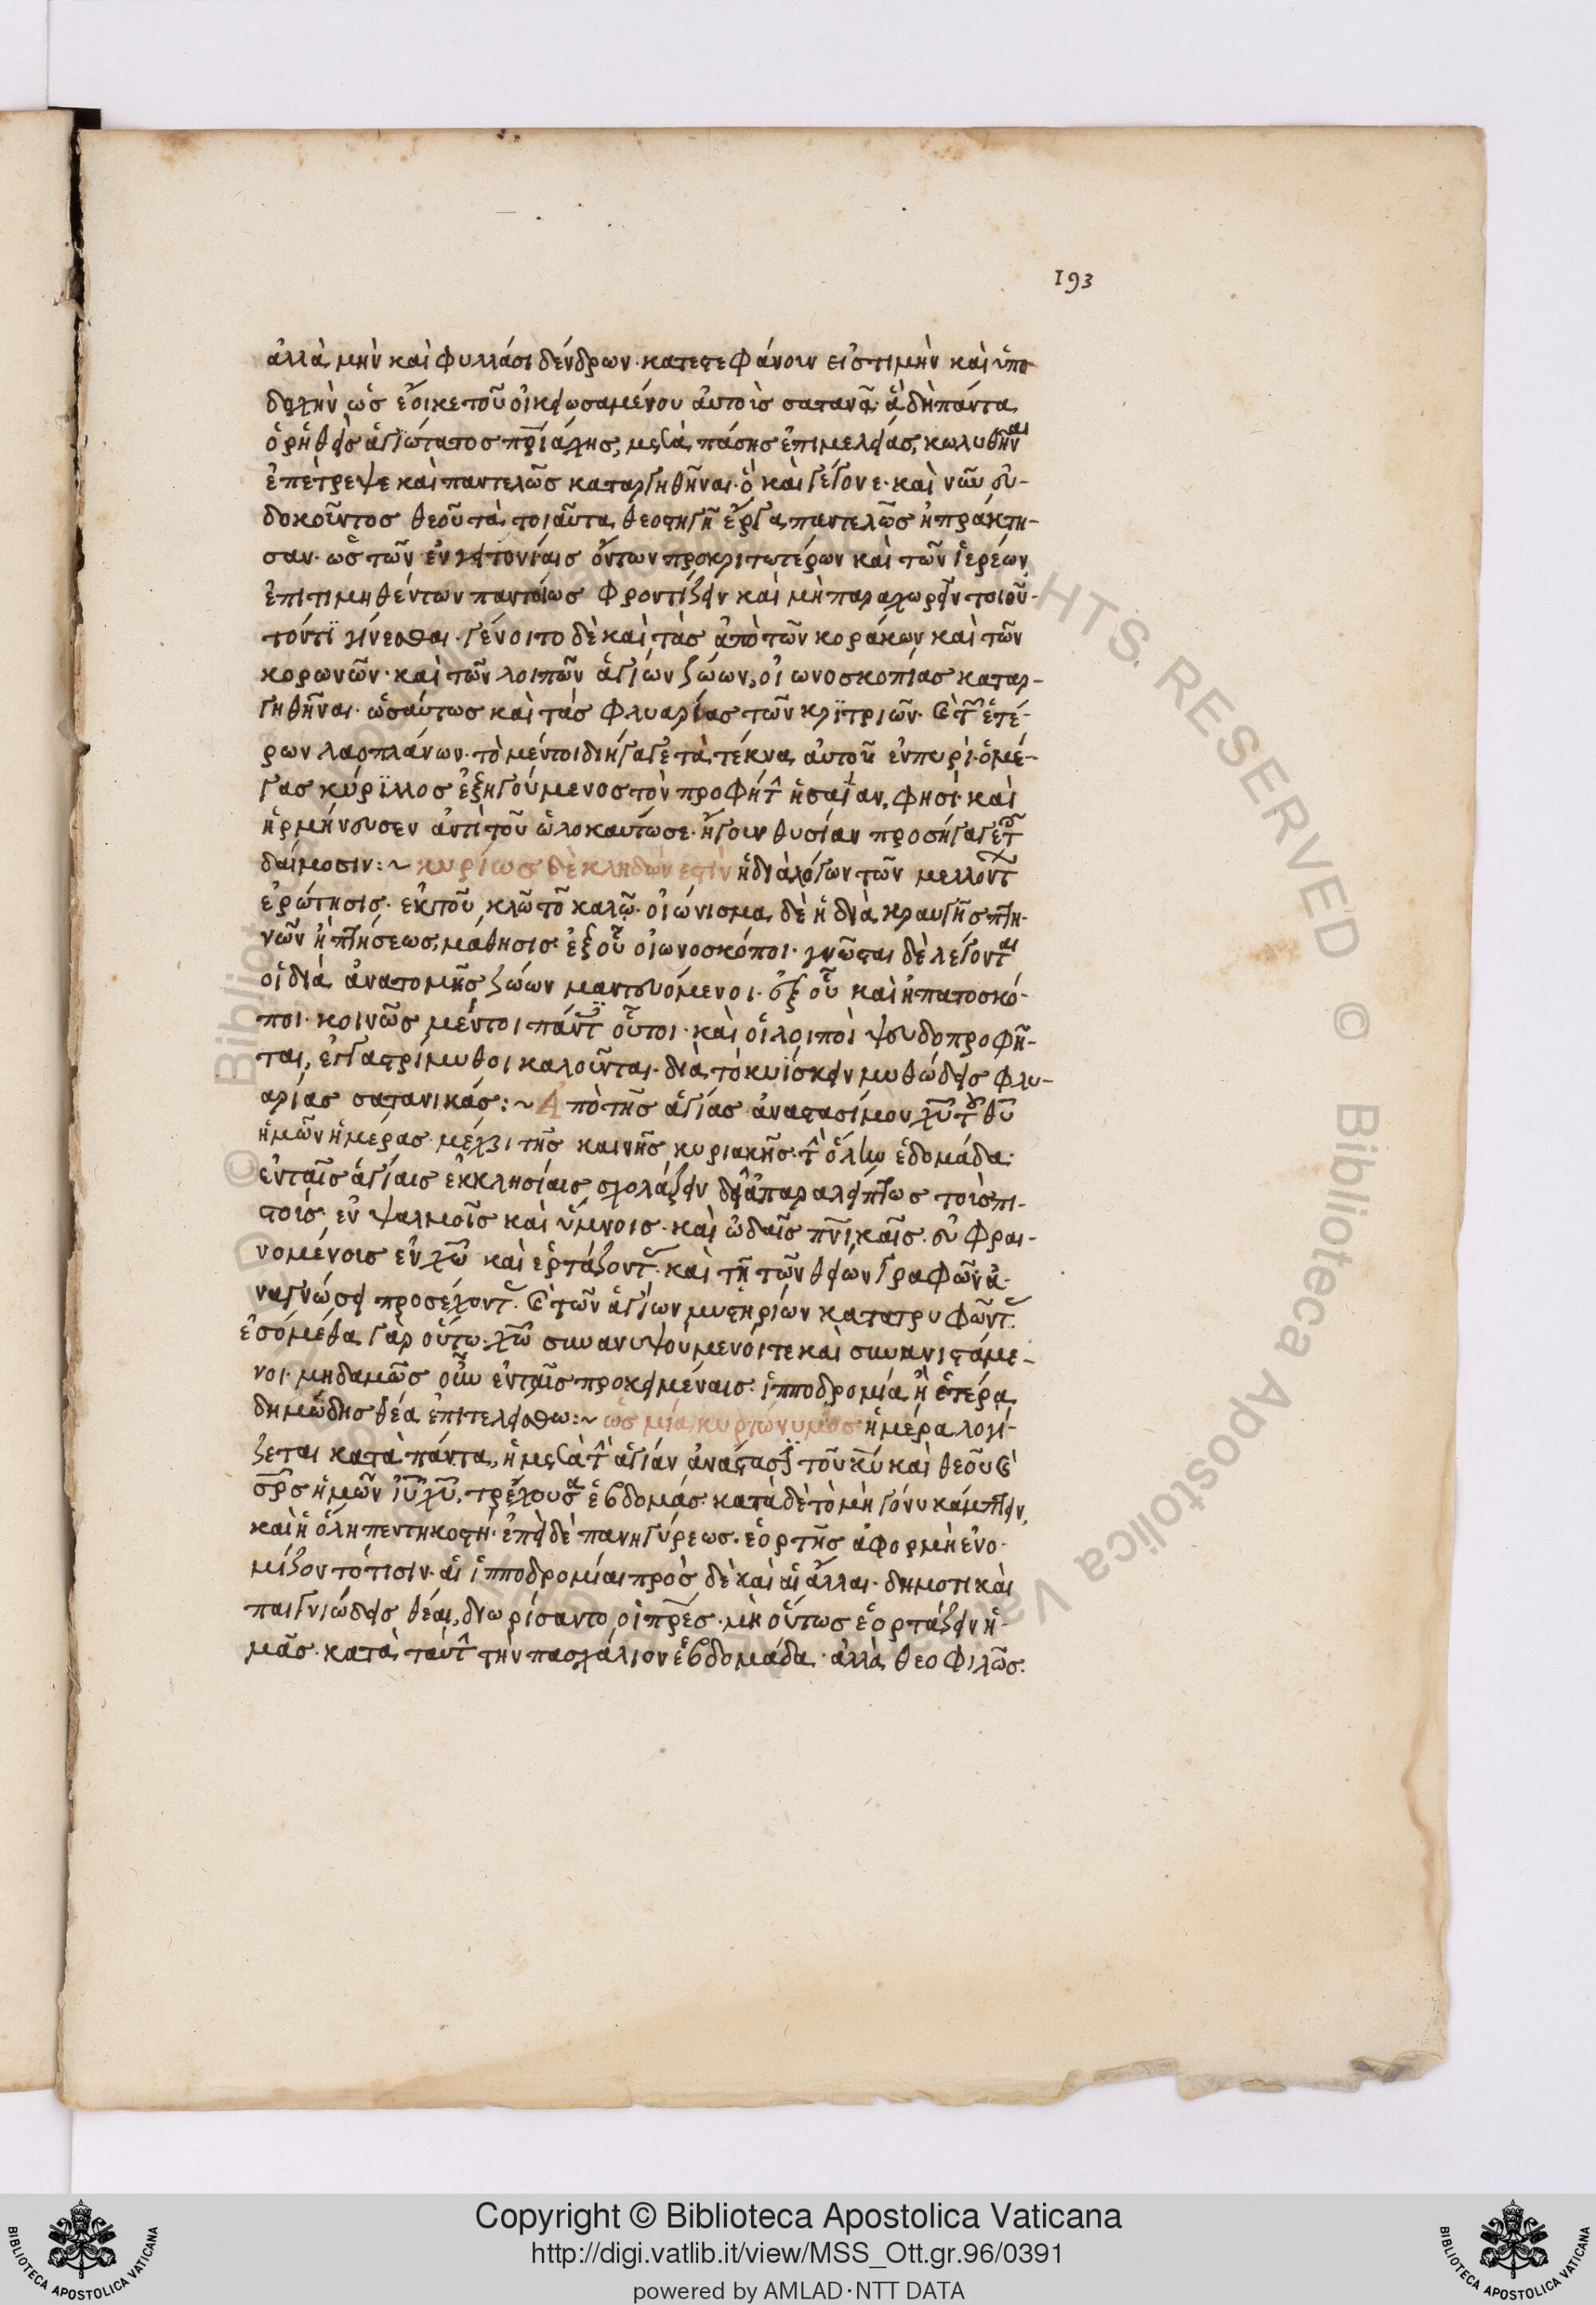 193
ἀλλὰ μὴν καὶ φυλλάσι δένδρων· κατεστεφάνουν εἰς τιμὴν καὶ ὑπο-
δοχὴν ὡς ἔοικε τοῦ οἰκειωσαμένου αὐτοὶς σατανᾶ· ἃ δὴ πάντα
ὁ ῥηθεὶς ἁγιώτατος πριάρχης, μετὰ πάσης ἐπιμελείας, κωλυθῆναι
ἐπέτρεψε καὶ παντελῶς καταργηθῆναι· ὃ καὶ γέγονε· καὶ νῦν εὐ-
δοκοῦντος θεοῦ τὰ τοιαῦτα θεοστηγῆ ἔργα παντελῶς ἠπράκτη-
σαν· ὡς τῶν ἐν γειτονίαις ὄντων προκριτωτέρων καὶ τῶν ἱερέων
ἐπιτιμηθέντων παντοίως φροντίζειν καὶ μὴ παραχωρεῖν τοιοῦ-
τόν τϊ γίνεσθαι· γένοιτο δὲ καὶ τὰς ἀπὸ τῶν κοράκων καὶ τῶν
κορωνῶν· καὶ τῶν λοιπῶν ἁγίων ζώων, οἰωνοσκοπίας καταρ-
γηθῆναι· ὡσαύτως καὶ τὰς φλυαρίας τῶν κρϊτριῶν· καὶ τῶν ἑτέ-
ρων λαοπλάνων· τὸ μέντοι διήγαγε τὰ τέκνα αὐτοῦ ἐν πυρί· ὁ μέ-
γας κύρϊλλος ἐξηγούμενος τὸν προφήτ ἡσαΐαν, φησὶ· καὶ
ἡρμήνευσεν ἀντὶ τοῦ ὡλοκαυτωσε· ἤγουν θυσίαν προσήγαγε τ
δαίμοσιν:~ κυρίως δὲ κληδών ἐστὶν ἡ διὰ λόγων τῶν μελλόντ
ἐρώτησις· ἐκ τοῦ κλῶ τὸ καλῶ· οἰώνισμα δὲ ἡ διὰ κραυγῆς πτη-
νῶν ἢ πτήσεως, μάθησις· ἐξ οὗ οἰωνοσκόποι· γνῶσται δὲ λέγονται
οἱ διὰ ἀνατομῆς ζώων μαντευόμενοι· ἐξ οὗ καὶ ἡπατοσκό-
ποι· κοινῶς μέντοι πάντ οὗτοι· καὶ οἱ λοιποὶ ψευδοπροφῆ-
ται, ἐγγαστρίμυθοι καλοῦνται· διὰ τὸ κυΐσκειν μυθώδεις φλυ-
αρίας σατανικάς:~ Ἀπὸ τῆς ἁγίας ἀναστασίμου χυ τοῦ θυ
ἡμῶν ἡμέρας· μέχρι τῆς καινῆς κυριακῆς· τ ὅλην ἑδομάδα·
ἐν ταῖς ἁγίαις ἐκκλησίαις σχολάζειν δεῖ ἀπαραλείπτως τοὶς πι-
στοίς· ἐν ψαλμοῖς καὶ ὕμνοις· καὶ ὠδαῖς πνικαῖς· εὐφραι-
νομένοις ἐν χω καὶ ἑρτάζοντ· καὶ τῆ τῶν θείων γραφῶν ἀ-
ναγνώσει προσέχοντ· καὶ τῶν ἁγίων μυστηρίων κατατρυφῶντ·
ἐσόμεθα γὰρ οὕτω· χω συνανυψούμενοί τε καὶ συνανιστάμε-
νοι· μηδαμῶς οὖν ἐν ταῖς προκειμέναις· ἱπποδρομία ἢ ἑτέρα
δημώδης θέα ἐπιτελείσθω:~ ὡς μία κυριώνυμος ἡμέρα λογί-
ζεται κατὰ πάντα, ἡ μετὰ τ ἁγίαν ἀνάστασϊ τοῦ κυ καὶ θεοῦ καὶ
σρς ἡμῶν ιυ χυ, τρέχουσα ἑβδομάς· κατὰ δὲ τὸ μὴ γόνυ κάμπτειν,
καὶ ἡ ὅλη πεντηκοστή· ἐπεὶ δὲ πανηγύρεως· ἑορτῆς ἀφορμὴ ἐνο-
μίζοντό τισιν· αἱ ἱπποδρομίαι προὸς δὲ καὶ αἱ ἄλλαι· δημοτικαὶ
παιγνιώδεις θέαι, διωρίσαντο οἱ πρες· μὴ οὕτως ἑορτάζειν ἡ-
μᾶς· κατὰ ταύτ τὴν πασχάλιον ἑβδομάδα· ἀλλὰ θεοφιλῶς·
Copyright © Biblioteca Apostolica Vaticana
http://digi.vatlib.it/view/MSS_Ott.gr.96/0391
powered by AMLAD·NTT DATA
BIBLIOTECA APOSTOLICA VATICANA
BIBLIOTECA APOSTOLICA VATICANA